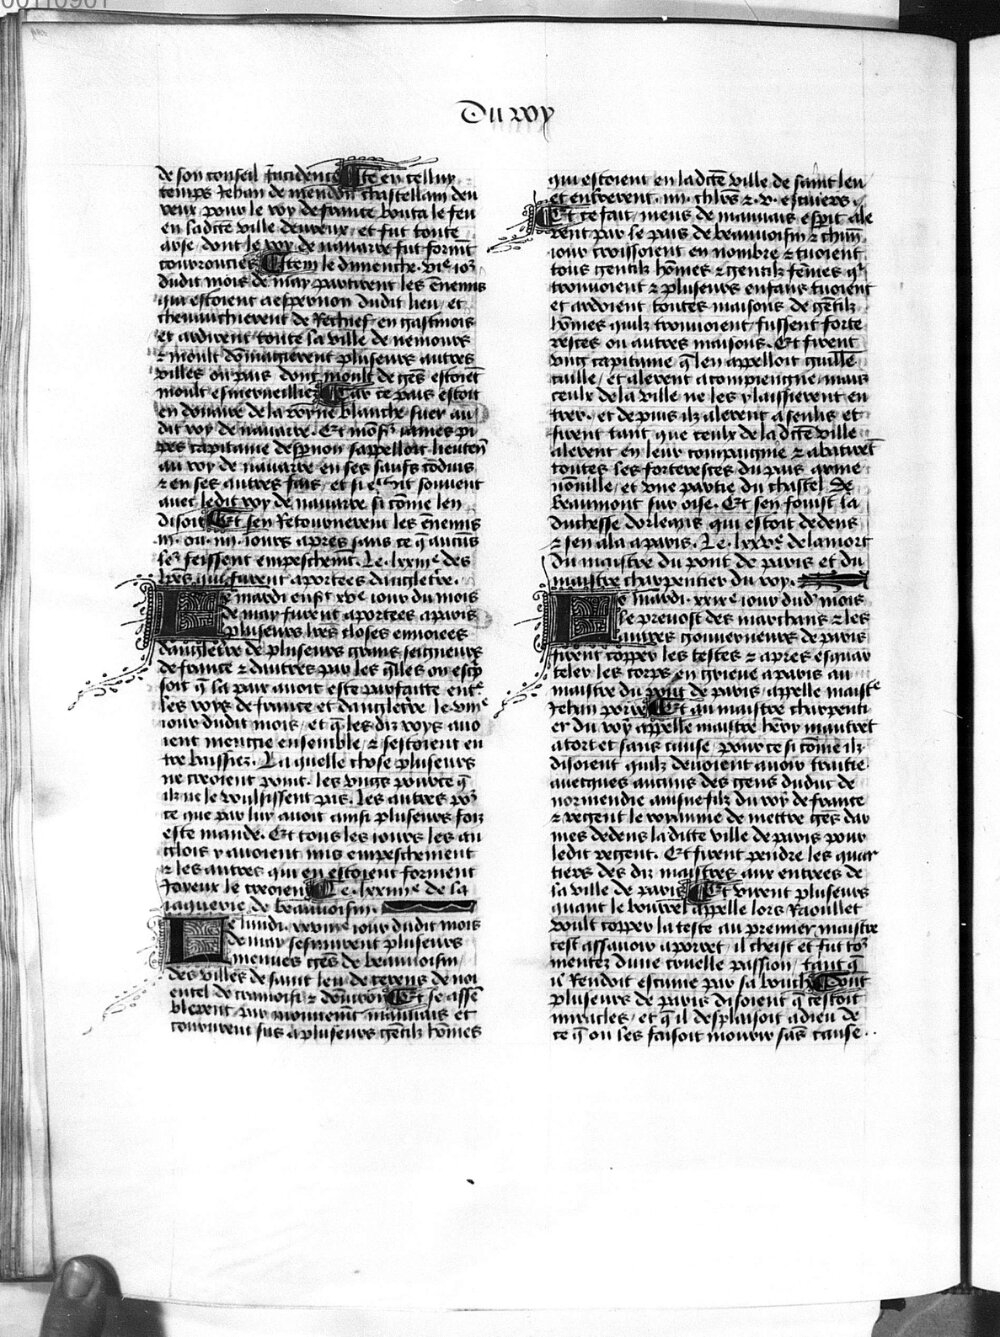 Du roy
de son conseil Incidence Ite en celluy
temps Jehan de mendon chastellain deu
reux pour le roy de france bouta le feu
en ladcte ville deureux et fut toute
arse dont le roy de nauarre fut formt
courroucies Item le dimenche vie io2
dudit mois de may partirent les enemis
qui estoient a espernon dudit lieu et
cheuauchierent de Rechief en gastinois
et ardirent toute la ville de nemours
et moult domagierent plusieurs autres
villes ou pais dont moult de ges estoiet
moult esmerueillies Car ce pais estoit
en douaire de la royne blanche suer au
dit roy de nauarre. Et mons. iames pi
pes capitaine despnon sappelloit lieuten
au roy de nauarre en ses saufs coduis
et en ses autres fais, et si estoit souuent
auec ledit roy de nauarre si come len
disoit Et sen Retournerent les enemis
.iii. ou .iiii. iours apres sans ce q aucus
le2 feissent empeschemt. Le .lxxiiie. des
lres qui furent aportees dangletre.
Le mardi enst xve iour du mois
de may furent aportees a paris
plusieurs lres closes enuoiees
dangletre de plusieurs grans seigneurs
de france et dautres par les qlles on escp
soit q la paix auoit este parfaitte entr
les roys de france et dangletre le viiie
iour dudit mois, et q les diz roys auo
ient mengie ensemble, et sestoient en
tre baissiez. La quelle chose plusieurs
ne creoient point. les vngs pource q
ilz ne le voulsissent pas. Les autres po2
ce que par luy auoit ainsi plusieurs foiz
este mande. Et tous les iours les an
glois y auoient mis empeschement
et les autres qui en estoient forment
Joyeux le creoient Le .lxxiiiie de la
iaquerie de beauuoisin.
Le lundi .xxviiie iour dudit mois
de may sesmurent plusieurs
menues ges de beauuoisin
des villes de saint leu de cerens de noi
entel de cramoisi et denuiron Et se assē
blerent par mouuemt mauuais et
coururent sus a plusieurs getilz homes
qui estoient en ladcte ville de saint leu
et en tuerent .iiii. chlrs et .v. escuiers.
Et ce fait, meus de mauuais espit ale
rent par le pais de beauuoisin et chun
iour croissoient en nombre et tuoient
tous gentilz homes et gentilz femes ql
trouuoient et plusieurs enfans tuoient
et ardoient toutes maisons de getilz
homes quilz trouuoient, fussent forte
resces ou autres maisons. Et firent
vng capitaine q len appelloit guille
caille, et alerent a compiengne, mais
ceulx de la ville ne les y laissierent en
trer. et depuis ilz alerent a senlis et
firent tant que ceulx de la dcte ville
alerent en leur compaignie et abatiret
toutes les forteresces du pais armē
nouille, et vne partie du chastel de
beaumont sur oise. Et sen fouist la
duchesse dorleans qui estoit dedens
et sen ala a paris. Le .lxxve de la mort
du maistre du pont de paris et du
maistre charpentier du roy.
Le mardi .xxixe iour dudt mois
le preuost des marchans et les
autres gouuerneurs de paris
firent copper les testes et apres esquar
teler les corps en grieue a paris au
maistre du pont de paris, appelle maistr
Jehan poret Et au maistre charpenti
er du roy appelle maistre henry mautret
a tort et sans cause, pource si come ilz
disoient quilz deuoient auoir traitie
auecques aucuns des gens du duc de
normendie ainsne filz du roy de france
et regent le royaume de mettre ges dar
mes dedens la ditte ville de paris pour
ledit regent. Et firent pendre les quar
tiers des diz maistres aux entrees de
la ville de paris Et virent plusieurs
quant le bourrel appelle lors Raoullet
voult copper la teste au premier maistre
cest assauoir a poret, il cheist et fut to2
mentez dune cruelle passion, tant q
il Rendoit escume par sa bouche Dont
plusieurs de paris disoient q cestoit
miracles, et q il desplaisoit a dieu de
ce q on les faisoit mourir sas cause . .